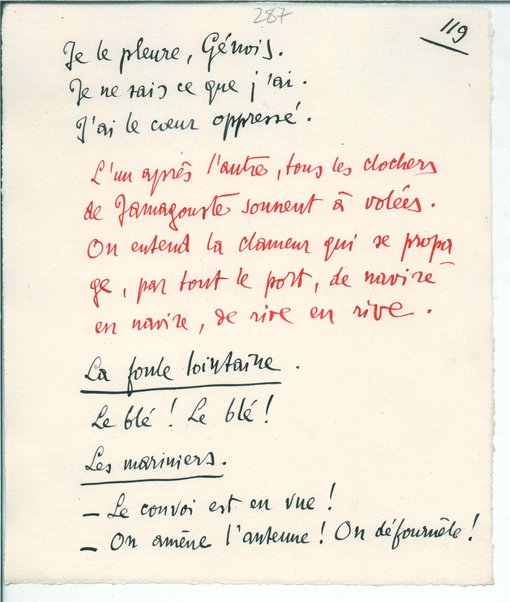 287
119
Je le pleure, Génois.
Je ne sais ce que j'ai.
J'ai le cœur oppressé.
L'un après l'autre, tous les clochers
de Famagouste sonnent à volées.
On entend la clameur qui se propa
ge, par tout le port, de navire
en navire, de rive en rive.
La foule lointaine.
Le blé! Le blé!
Les mariniers.
– Le convoi est en vue!
– On amène l'antenne! On défournèle!